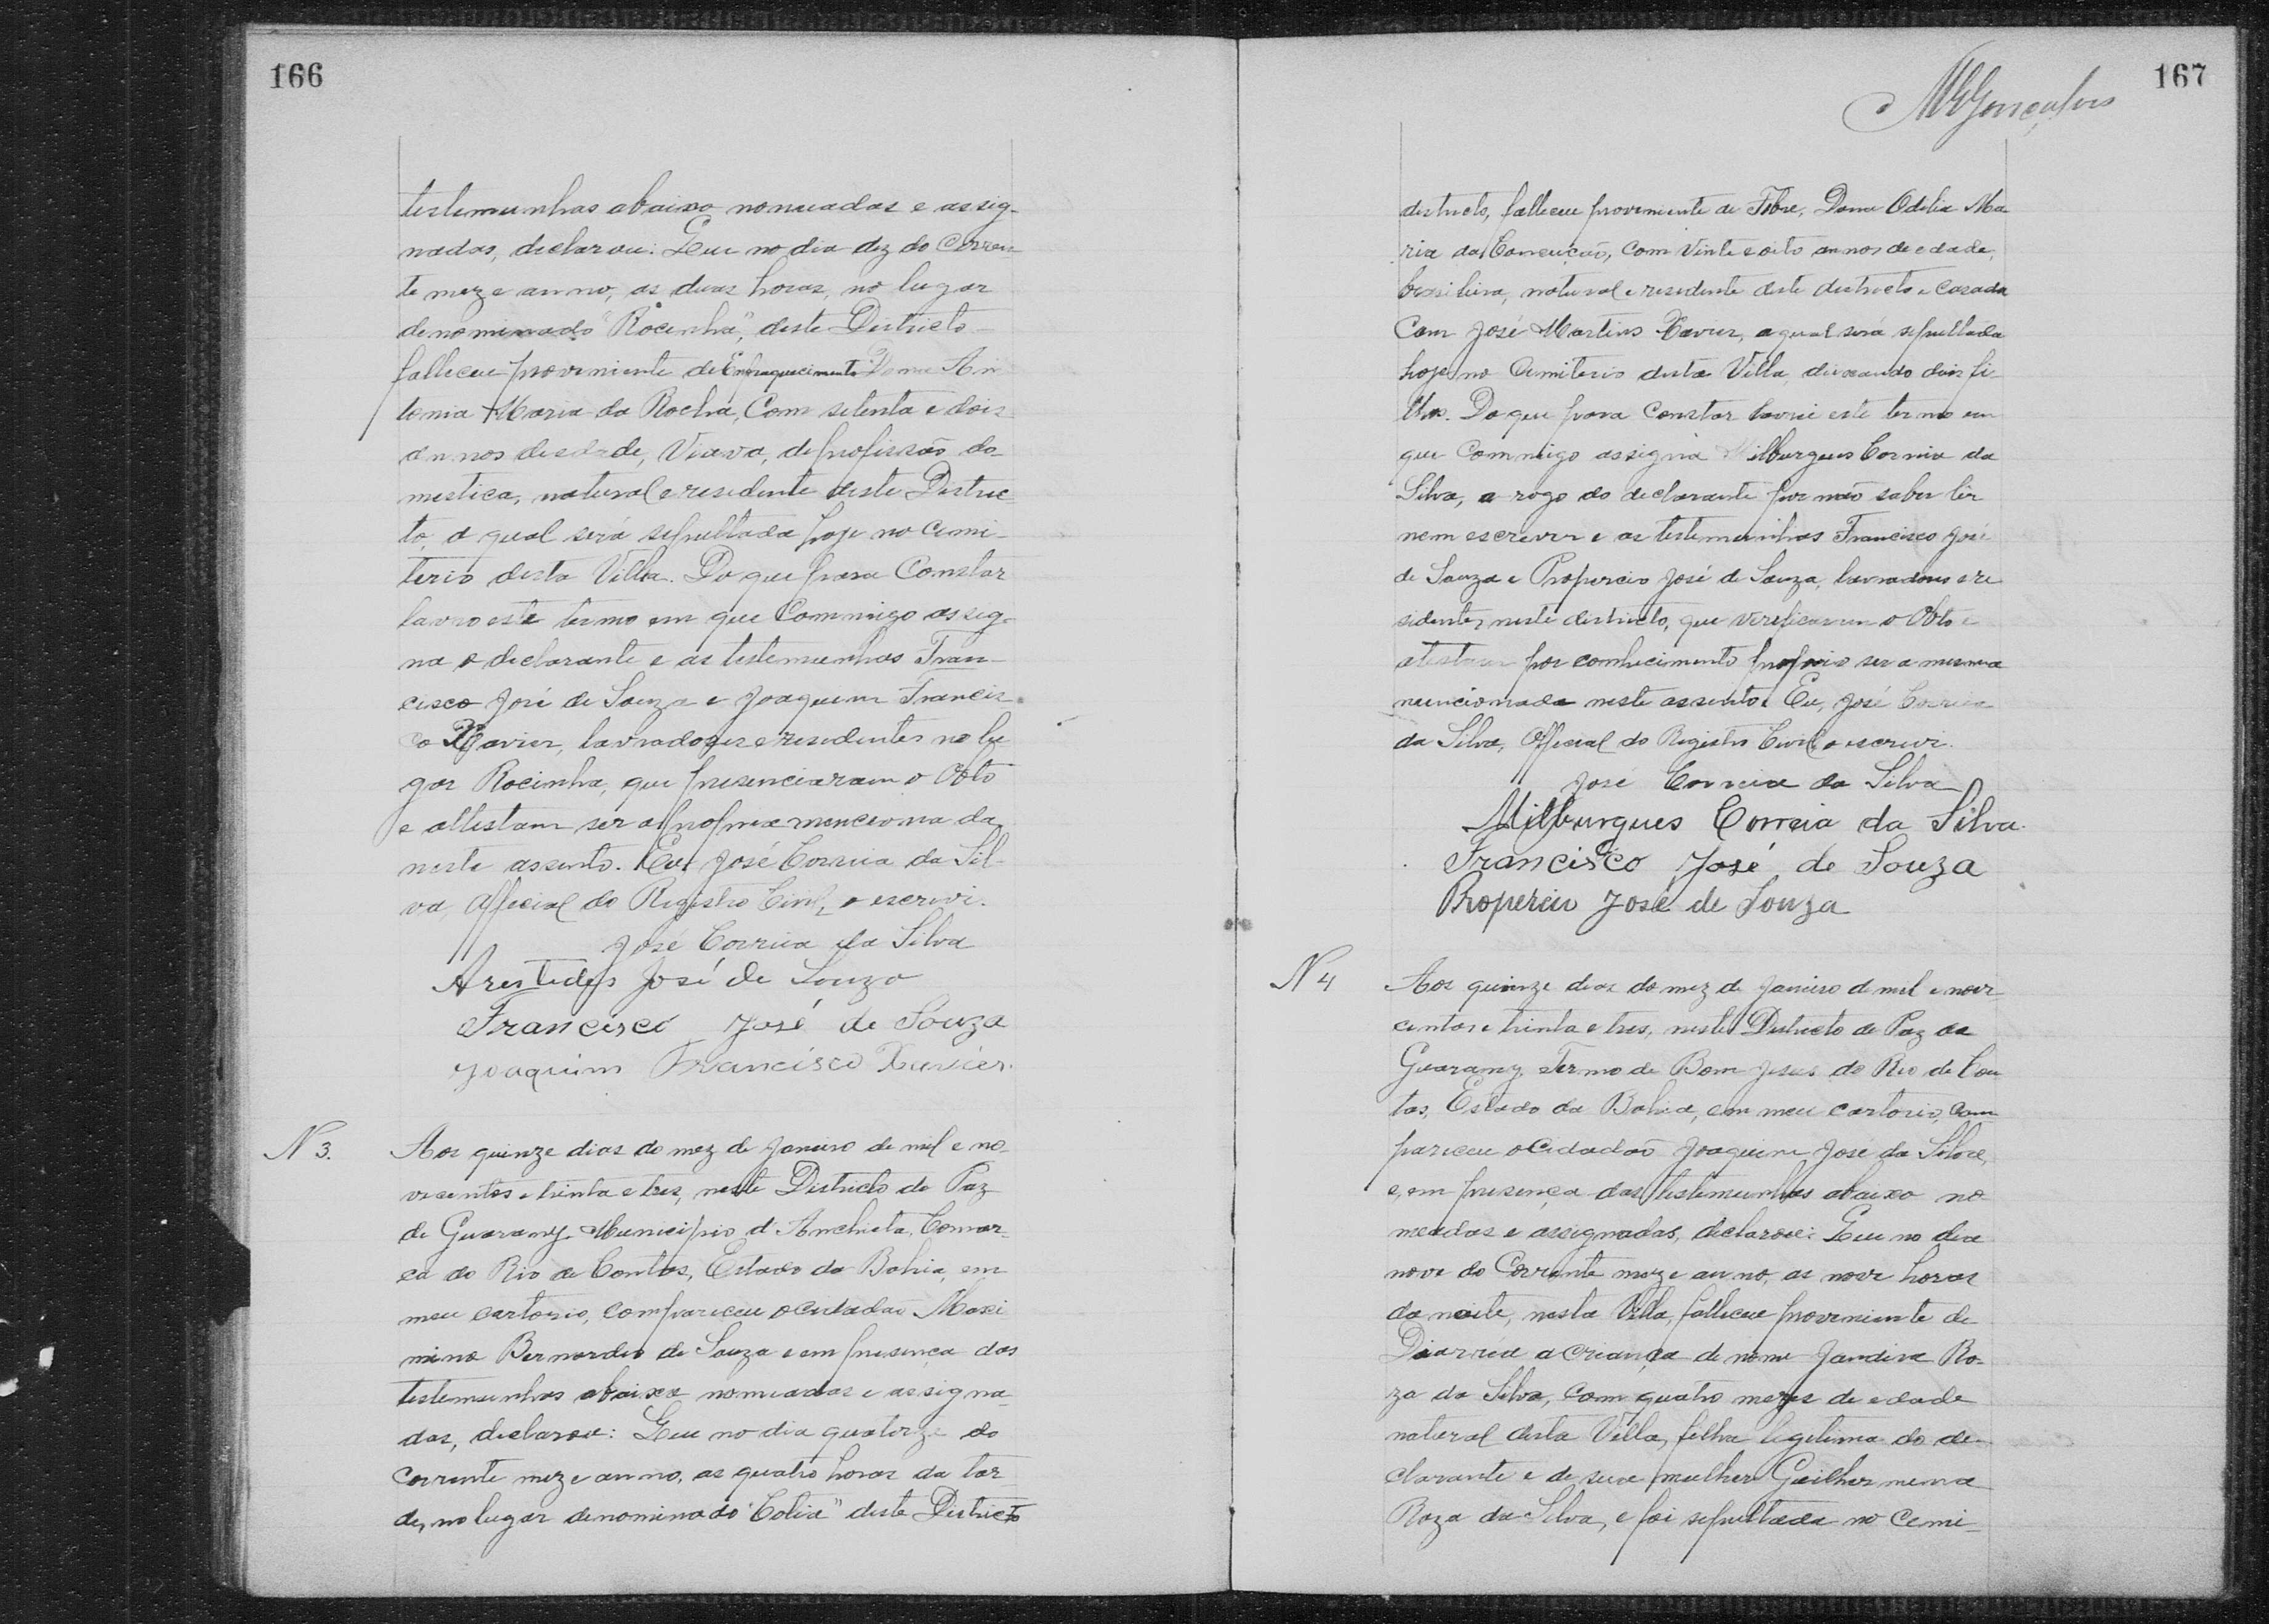 166
testemunhas abaixo nomeadas e assig-
nadas, declarou: Que no dia dez do Corren
te mez e anno, as duas horas, no lugar
denominado "Rocinha", deste Districto
falleceu proveniente de Enfraquecimento Dona An
tonia Maria da Rocha, Com setenta e dois
annos de edade, Viuva, de profissão do-
mestica, natural e residente deste Distric
to, a qual será sepultada hoje no Cemi-
terio desta Villa. Do que para Constar
lavro este termo em que Commigo assig-
na o declarante e as testemunhas Fran-
cisco José de Souza e Joaquim Francis-
co Xavier, lavradores e residentes no lu
gar Rocinha, que presenciaram o Obto
e attestam ser a propria menciona da
neste assento. Eu, José Correia da Sil-
va, Official do Registro Civil, o escrevi.
José Correia da Silva
Aristides José de Souza
Francisco José de Souza
Joaquim Francisco Xavier.
N 3. Aos quinze dias do mez de Janeiro de mil e no-
vecentos e trinta e tres, neste Districto de Paz
de Guarany, Municipio d'Anchieta, Comar-
ca do Rio de Contas, Estado da Bahia, em
meu cartorio, compareceu o cidadão Maxi
mino Bernardes de Souza e em presença das
testemunhas abaixo nomeadas e assigna-
das, declarou: Que no dia quatorze do
Corrente mez e anno, as quatro horas da tar
de, no lugar denominado "Cotia" deste Districto
167
MGGonçalves
districto, falleceu proveniente de Febre, Dona Odilia Ma
ria da Conceição, com vinte e oito annos de edade,
brasileira, natural e residente deste districto e casada
Com José Martins Xavier, a qual será sepultada
hoje no Cemiterio desta Villa, deixando dois fi-
lhos. Do que para Constar lavrei este termo em
que Commigo assigna Milburgues Correia da
Silva, a rogo do declarante por não saber ler
nem escrever e as testemunhas Francisco José
de Souza e Propercio José de Souza, lavradores e re
sidentes neste districto, que verificaram o Obto e
attestam por conhecimento proprio ser a mesma
mencionada neste assento. Eu, José Correia
da Silva, Official do Registro Civil o escrevi.
José Correia da Silva
Milburgues Correia da Silva.
Francisco José de Souza
Propercio José de Souza
N 4 Aos quinze dias do mez de Janeiro de mil e nove
centos e trinta e tres, neste Districto de Paz de
Guarany, Termo de Bom Jesus do Rio de Con
tas, Estado da Bahia, em meu cartorio, com
pareceu o Cidadão Joaquim José da Silva,
e, em presença das testemunhas abaixo no
meadas e assignadas, declarou: Que no dia
nove do Corrente mez e anno, as nove horas
da noite, nesta Villa, falleceu proveniente de
Diarréa a Criança de nome Jandira Ro-
za da Silva, com quatro mezes de edade
natural desta Villa, filha legitima do de-
clarante e de sua mulher Guilhermina
Roza da Silva, e foi sepultada no Cemi-